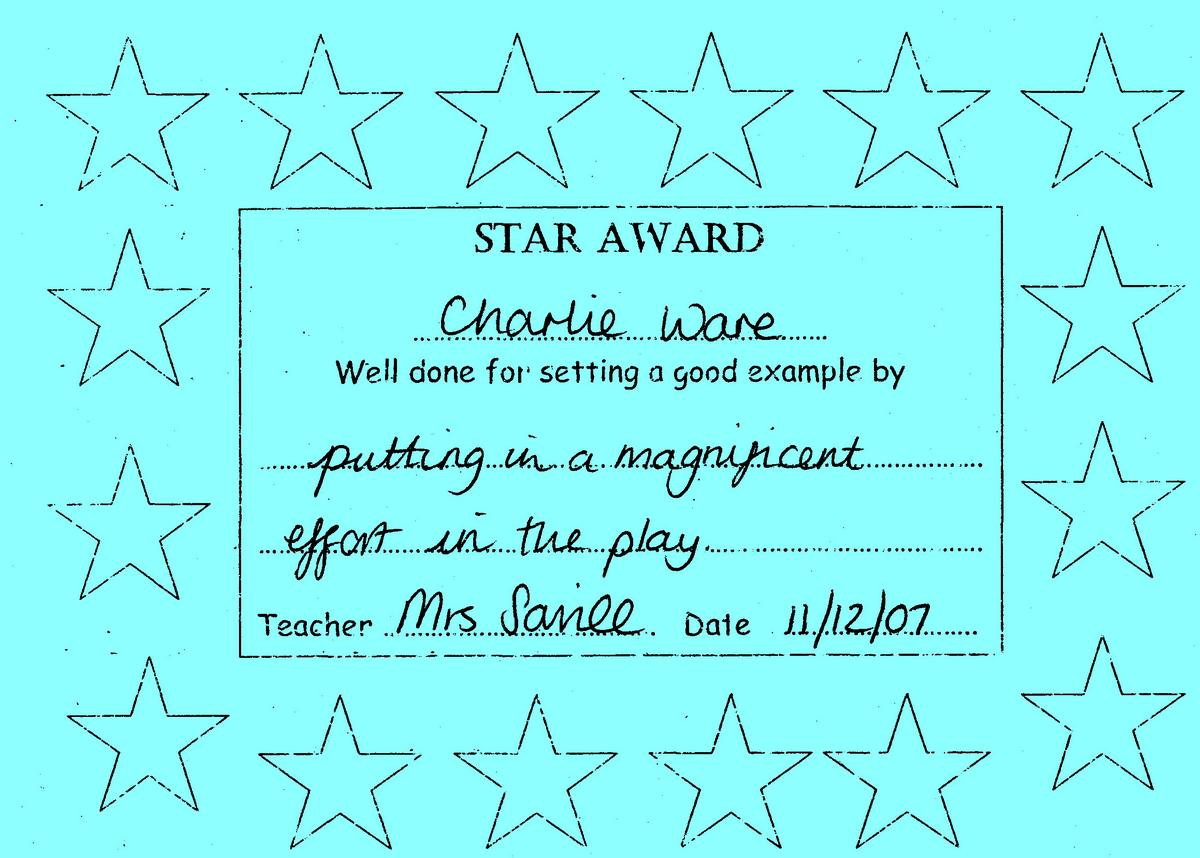 STAR AWARD
Charlie Ware
Well done for setting a good example by
putting in a magnificent
effort in the play.
Teacher Mrs Savill Date 11/12/07